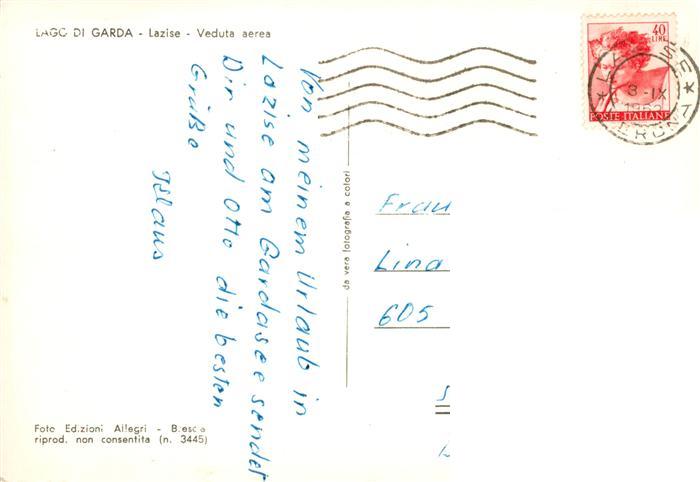 LAGO DI GARDA - Lazise - Veduta aerea
Von meinem Urlaub in
Lazise am Gardasee sendet
Dir und Otto die besten
Grüße
Klaus
da vera fotografia a colori
40
LIRE
POSTE ITALIANE
8-IX
Frau
Lina
605
Foto Edizioni Allegri - Brescia
riprod. non consentita (n. 3445)